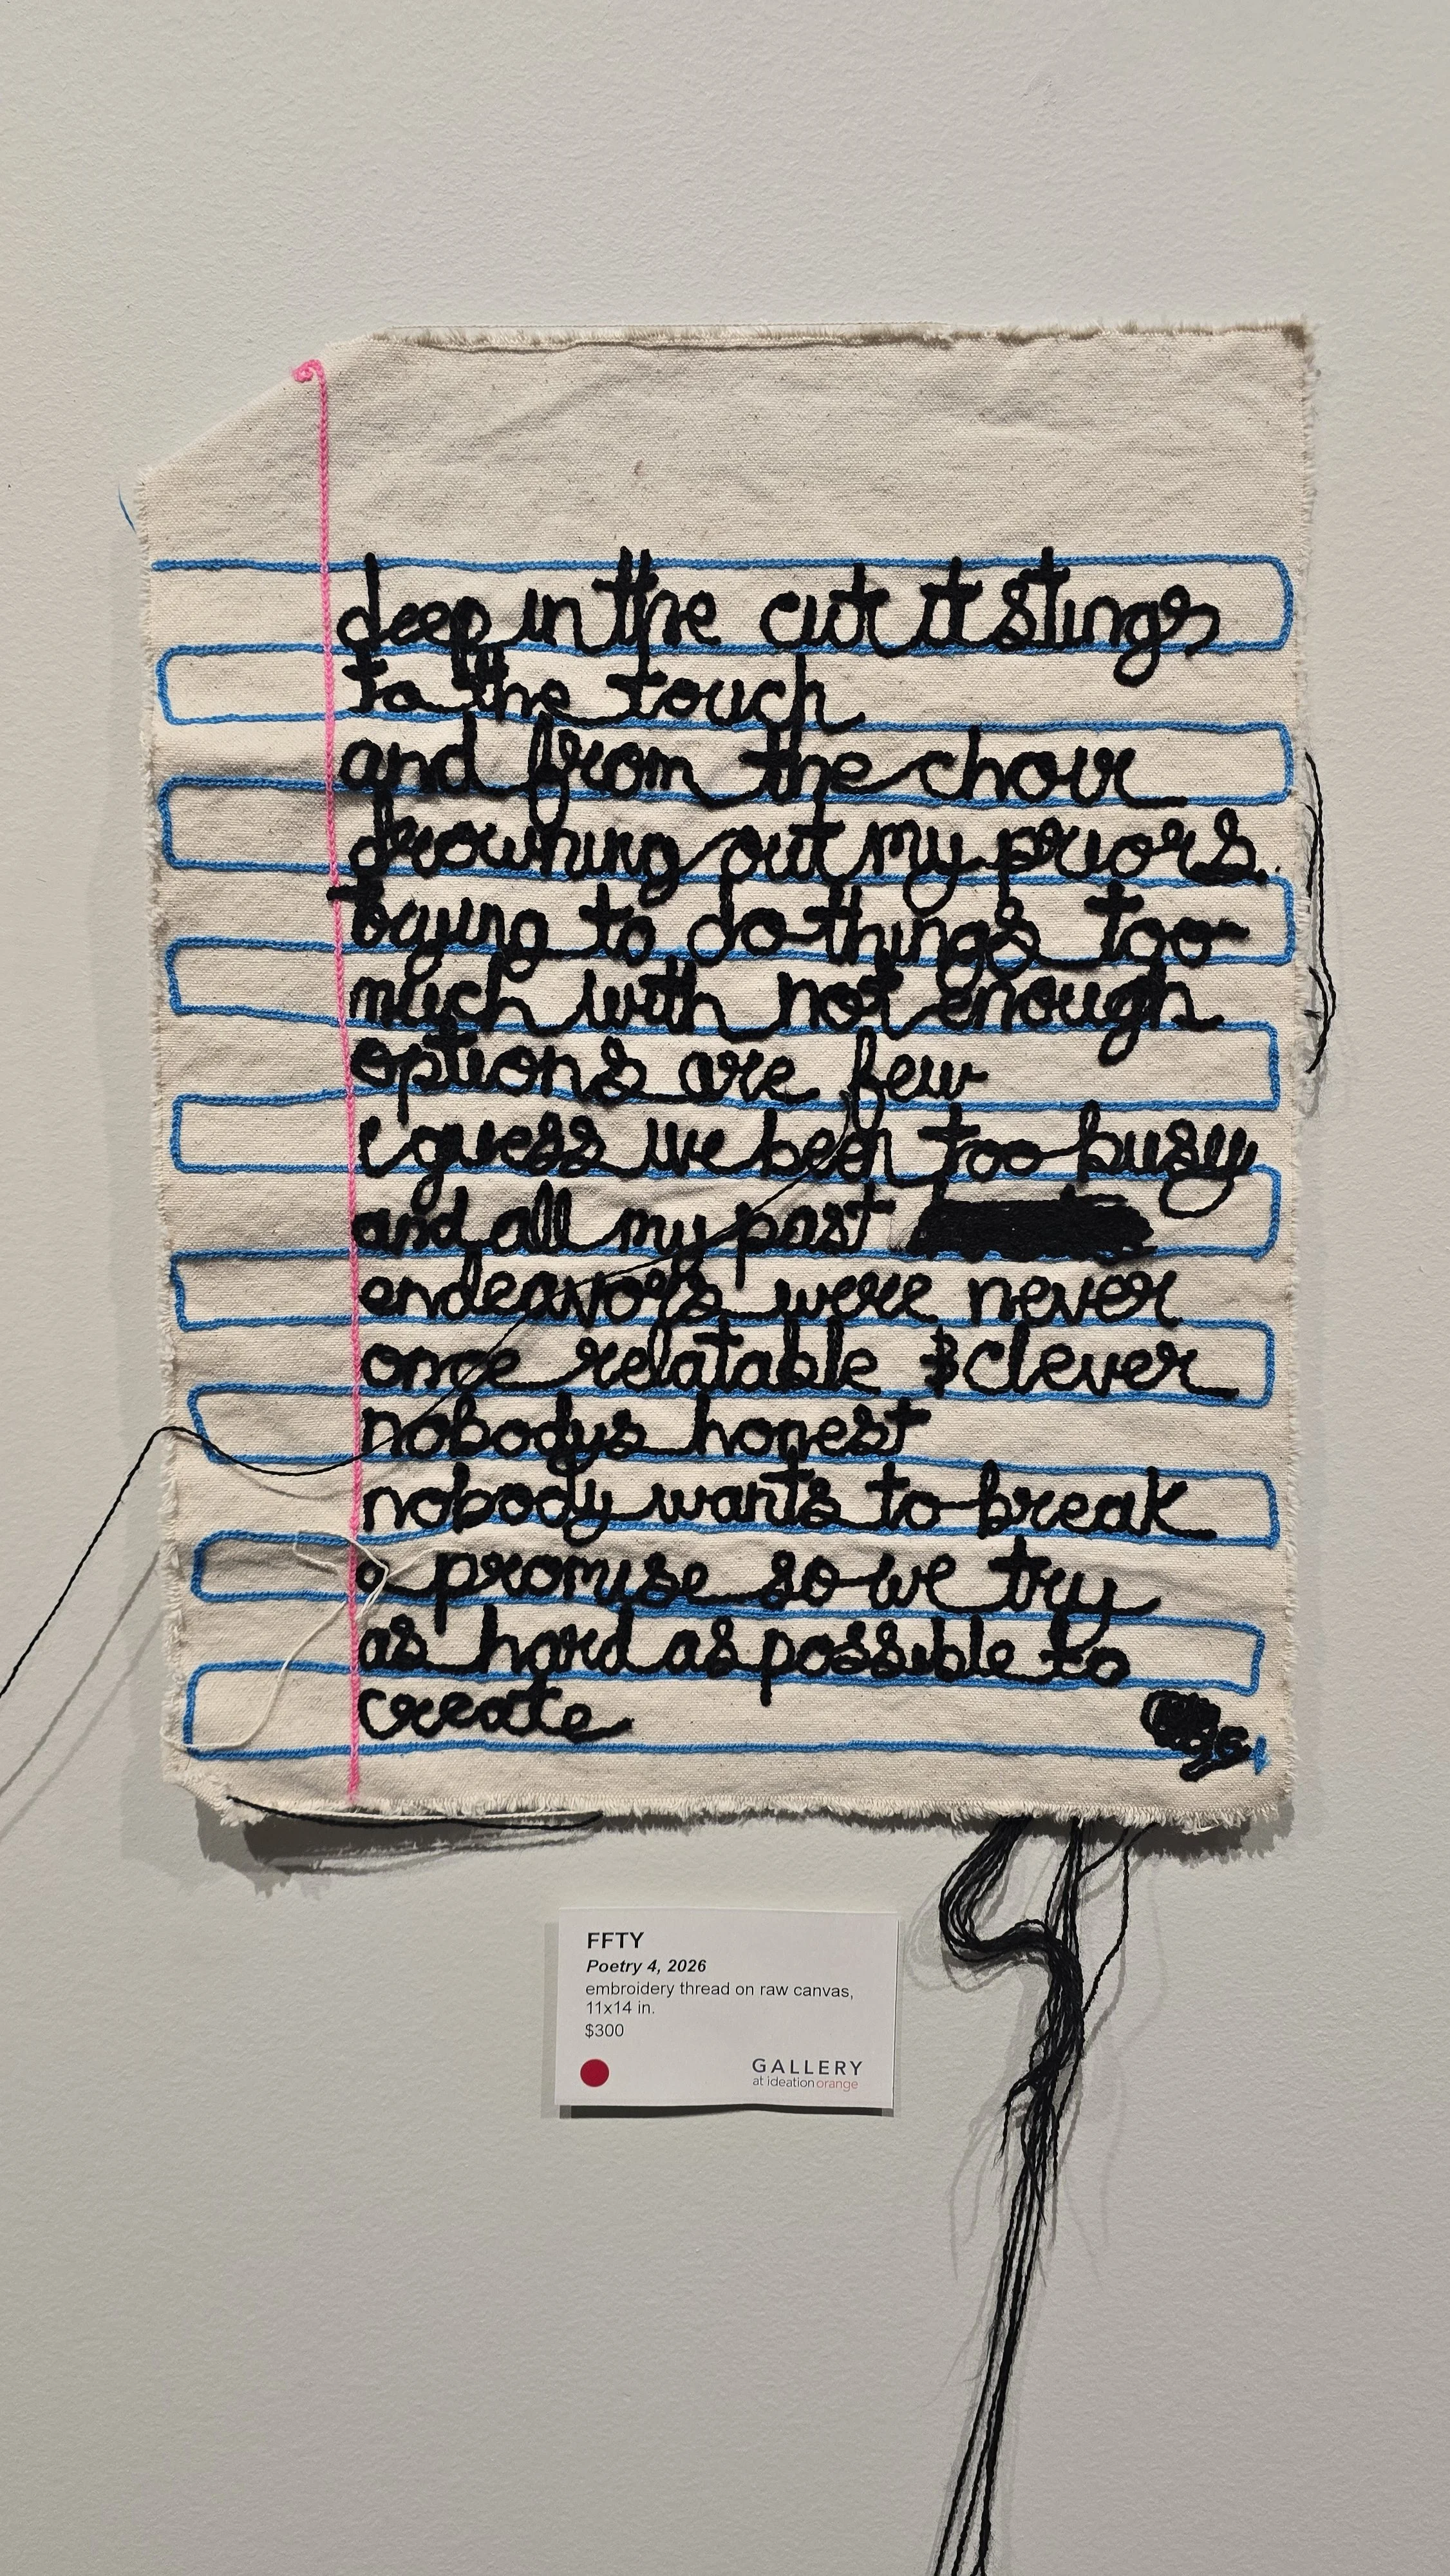 deep in the cut it stings
to the touch
and from the choir
drowning out my priors.
trying to do things too
much with not enough
options are few
i guess we been too busy
and all my past
endeavors were never
once relatable & clever
nobodys honest
nobody wants to break
a promise so we try
as hard as possible to
create
FFTY
Poetry 4, 2026
embroidery thread on raw canvas,
11x14 in.
$300
GALLERY
at ideationorange